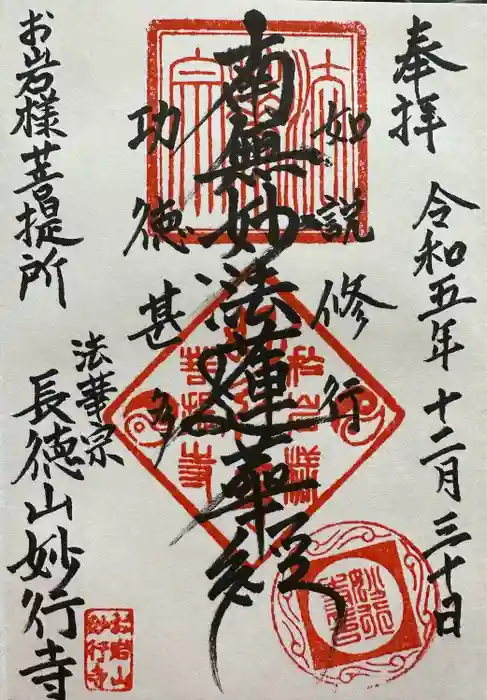 奉拝
令和五年十二月三十日
如説修行
南無妙法蓮華経
功徳甚多
お岩様菩提所
法華宗
長徳山妙行寺